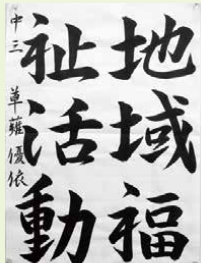 地域福
祉活動
中三 草薙優依